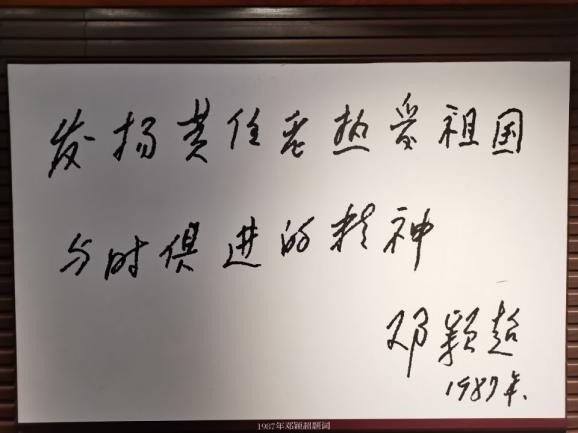 发扬黄任老热爱祖国
与时俱进的精神
邓颖超
1987年.
1987年邓颖超题词